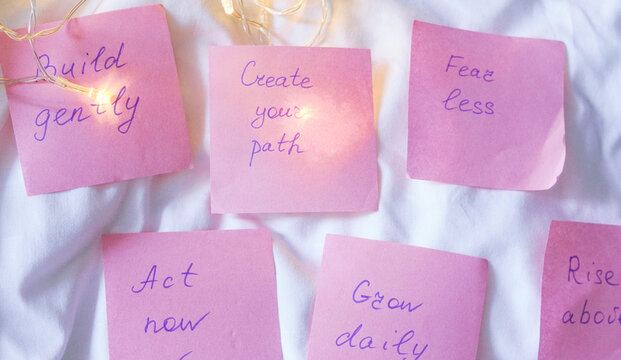 Build
gently
Create
your
path
Fear
less
Act
now
Grow
daily
Rise
above